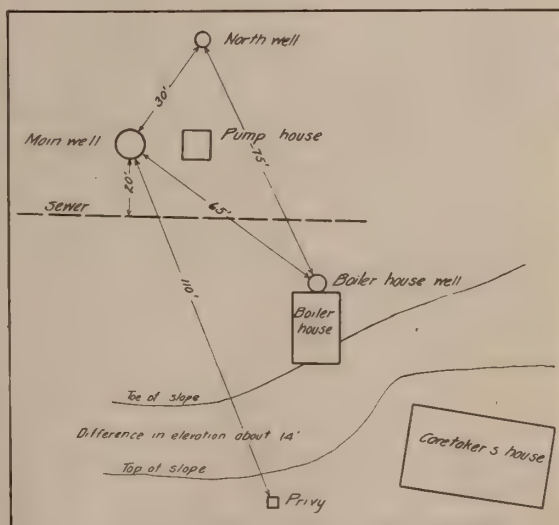 North well
30'
Main well
Pump house
75'
20'
Sewer
65'
Boiler house well
110'
Boiler
house
Toe of slope
Difference in elevation about 14'
Caretaker s house
Top of slope
Privy